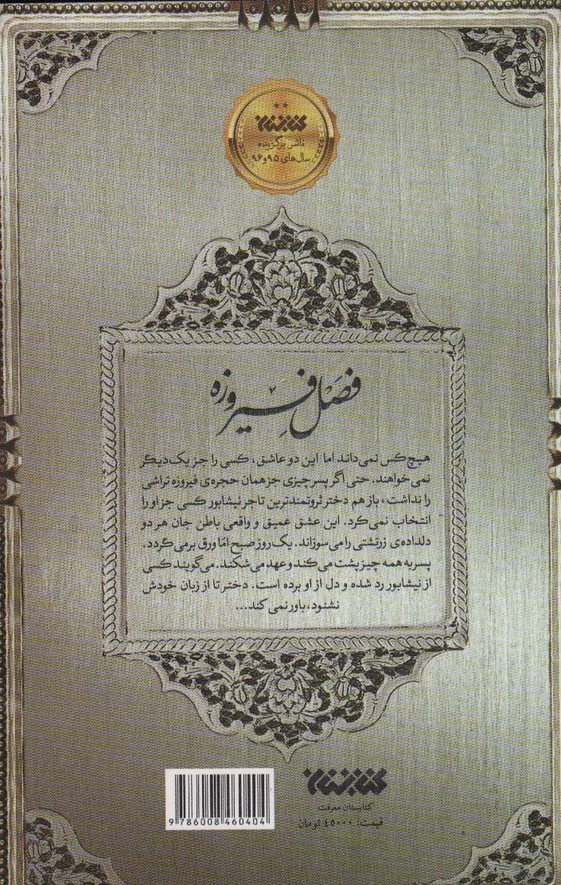 کتابستان
ناشر برگزیده
سال‌های ۹۵ و ۹۶
فصل فیروزه
هیچ‌کس نمی‌داند اما این دو عاشق، کسی را جز یک‌دیگر
نمی‌خواهند. حتی اگر پسر چیزی جز همان حجره‌ی فیروزه تراشی
را نداشت، باز هم دختر ثروتمندترین تاجر نیشابور کسی جز او را
انتخاب نمی‌کرد. این عشق عمیق و واقعی باطن جان هر دو
دلداده‌ی زرتشتی را می‌سوزاند. یک روز صبح امّا ورق برمی‌گردد.
پسر به همه چیز پشت می‌کند و عهد می‌شکند. می‌گویند کسی
از نیشابور رد شده و دل از او برده است. دختر تا از زبان خودش
نشنود، باور نمی‌کند...
کتابستان
کتابستان معرفت
قیمت: ۴۵۰۰۰ تومان
9 786008 460404